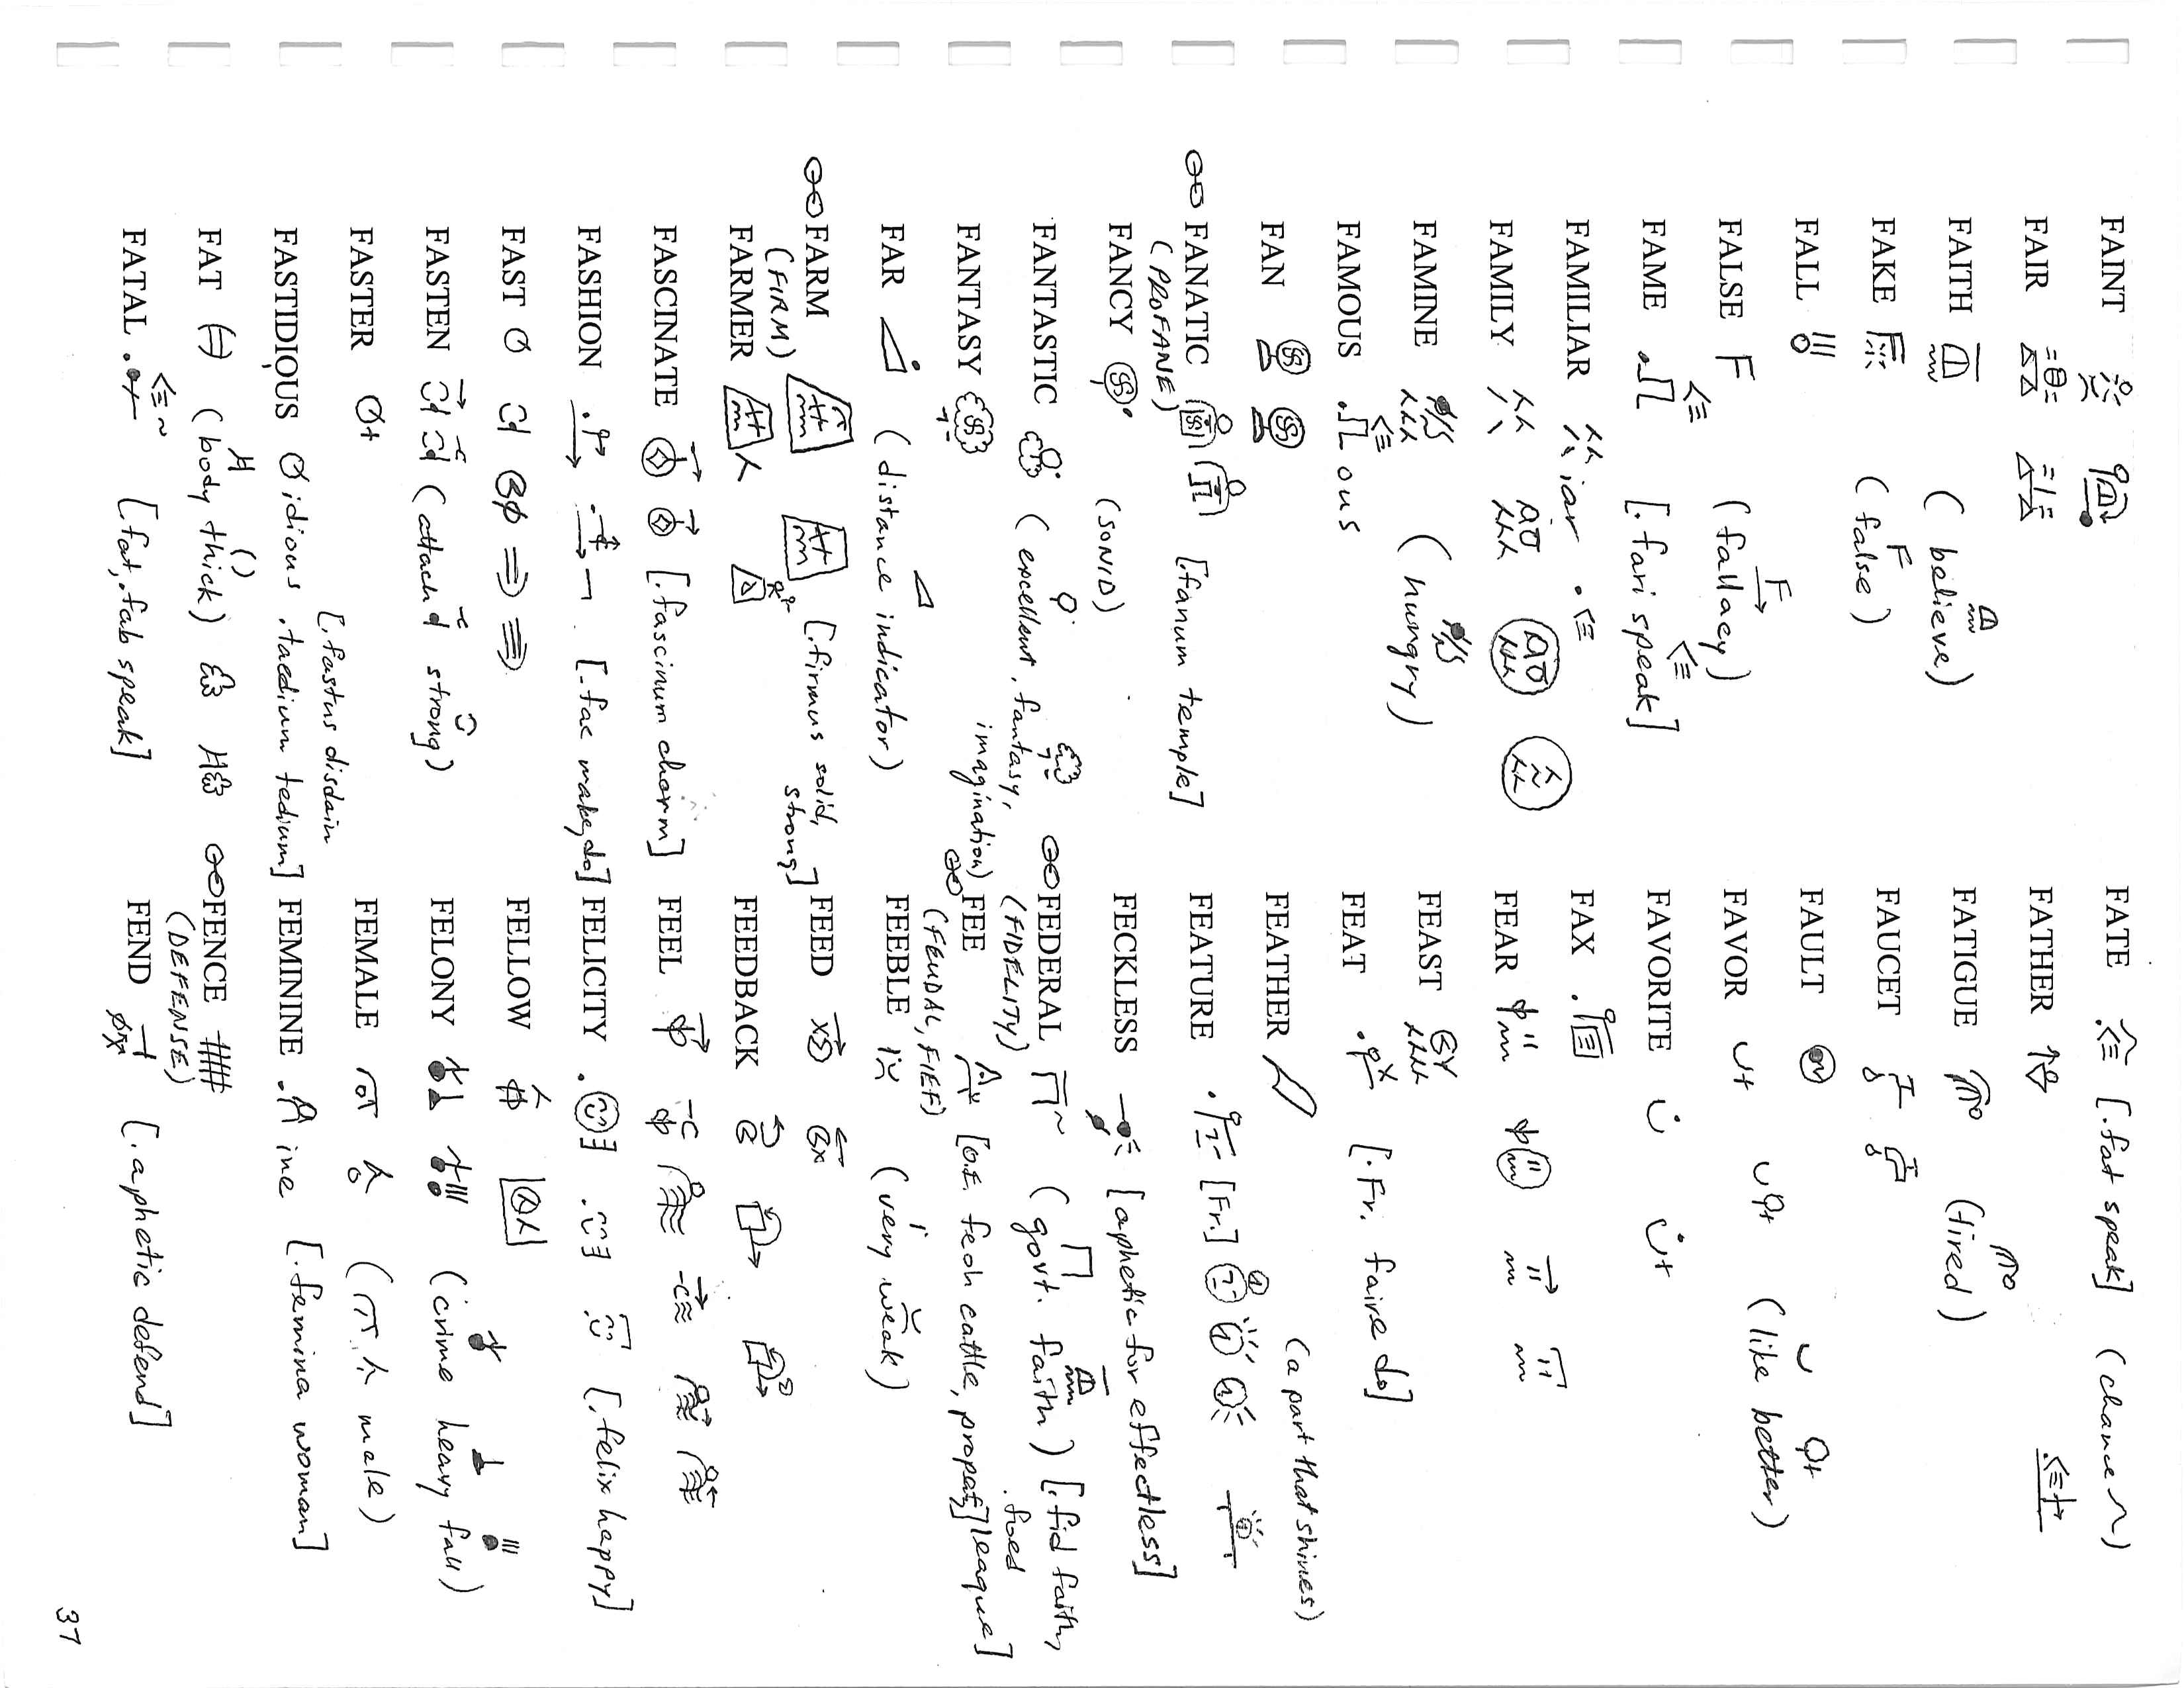 FAINT
FAIR
FAITH (believe)
FAKE (false) F
FALL
FALSE F (fallacy) F
FAME [.fari speak]
FAMILIAR iar
FAMILY
FAMINE (hungry)
FAMOUS ous
FAN
FANATIC [.fanum temple]
(PROFANE)
FANCY (SONID)
FANTASTIC (excellent, fantasy,
imagination)
FANTASY
FAR (distance indicator)
FARM [.firmus solid,
strong]
(FIRM)
FARMER
FASCINATE [.fascinum charm]
FASHION [.fac make, do]
FAST
FASTEN (attach strong)
FASTER
[.fastus disdain
FASTIDIOUS idious .taedium tedium]
FAT (body thick)
FATAL [.fat, .fab speak]
FATE [.fat speak] (chance ~)
FATHER
FATIGUE (tired)
FAUCET
FAULT
FAVOR (like better)
FAVORITE
FAX
FEAR
FEAST
FEAT [.Fr. faire do]
FEATHER (a part that shines)
FEATURE [Fr.]
FECKLESS [aphetic for effectless]
FEDERAL (govt. faith) [.fid faith,
.foed
league]
(FIDELITY)
FEE [O.E. feoh cattle, property]
(FEUDAL, FIEF)
FEEBLE (very weak)
FEED
FEEDBACK
FEEL
FELICITY [.felix happy]
FELLOW
FELONY (crime heavy fall)
FEMALE (male)
FEMININE ine [.femina woman]
FENCE
(DEFENSE)
FEND [.aphetic defend]
37